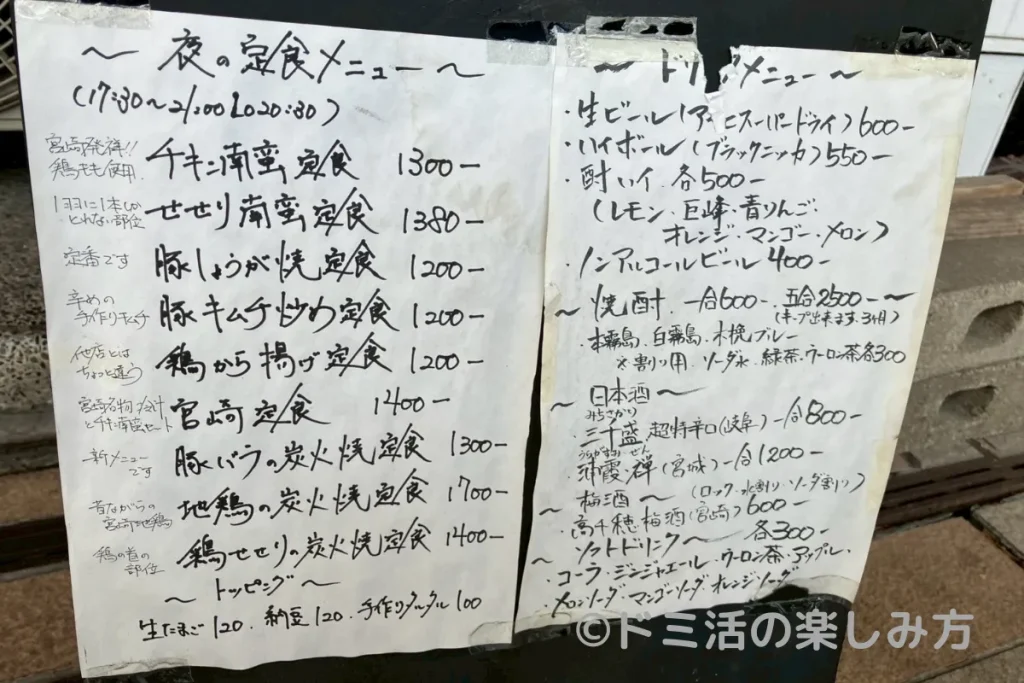 〜 夜の定食メニュー 〜
(17:30〜21:00 LO20:30)
宮崎発祥!!
鶏もも使用
チキン南蛮定食 1300-
1羽に1本しか
とれない部位
せせり南蛮定食 1380-
定番です
豚しょうが焼定食 1200-
辛めの
手作りキムチ
豚キムチ炒め定食 1200-
他店とは
ちょっと違う
鶏から揚げ定食 1200-
宮崎名物
とチキン南蛮セット
宮崎定食 1400-
新メニュー
です
豚バラの炭火焼定食 1300-
昔ながらの
宮崎地鶏
地鶏の炭火焼定食 1700-
鶏の首の
部位
鶏せせりの炭火焼定食 1400-
〜 トッピング 〜
生たまご120.納豆120.手作りタルタル100
〜 ドリ メニュー 〜
・生ビール(アサヒスーパードライ)600-
・ハイボール(ブラックニッカ)550-
・酎ハイ 各500-
(レモン・巨峰・青りんご・
オレンジ・マンゴー・メロン)
・ノンアルコールビール 400-
〜 焼酎 一合600-.五合2500- 〜
(キープ出来ます.3ヶ月)
・本霧島.白霧島.木挽ブルー
※割り用 ソーダ水.緑茶.ウーロン茶各300
〜 日本酒 〜
みちさかり
・三千盛 超特辛口(岐阜)一合800-
うらかすみ ぜん
・浦霞禅(宮城)一合1200-
〜 梅酒 〜 (ロック.水割り.ソーダ割り)
・高千穂梅酒(宮崎)600-
〜 ソフトドリンク 〜 各300-
・コーラ・ジンジャエール・ウーロン茶・アップル・
・メロンソーダ・マンゴーソーダ・オレンジソーダ
©ドミ活の楽しみ方